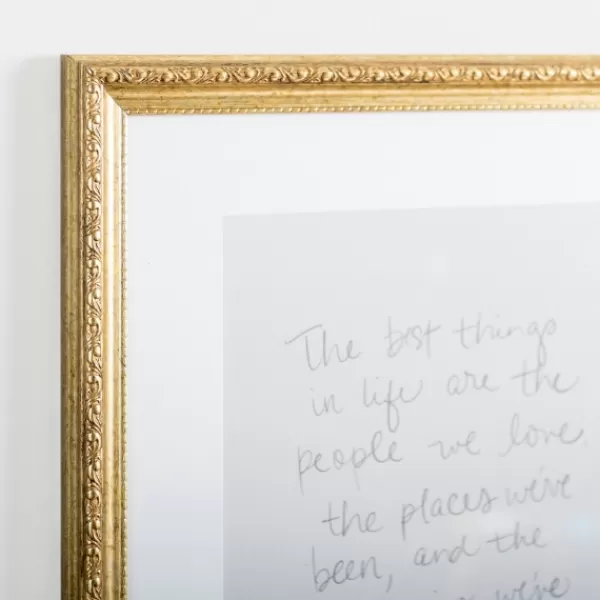 The best things
in life are the
people we love
the places we've
been, and the
we've